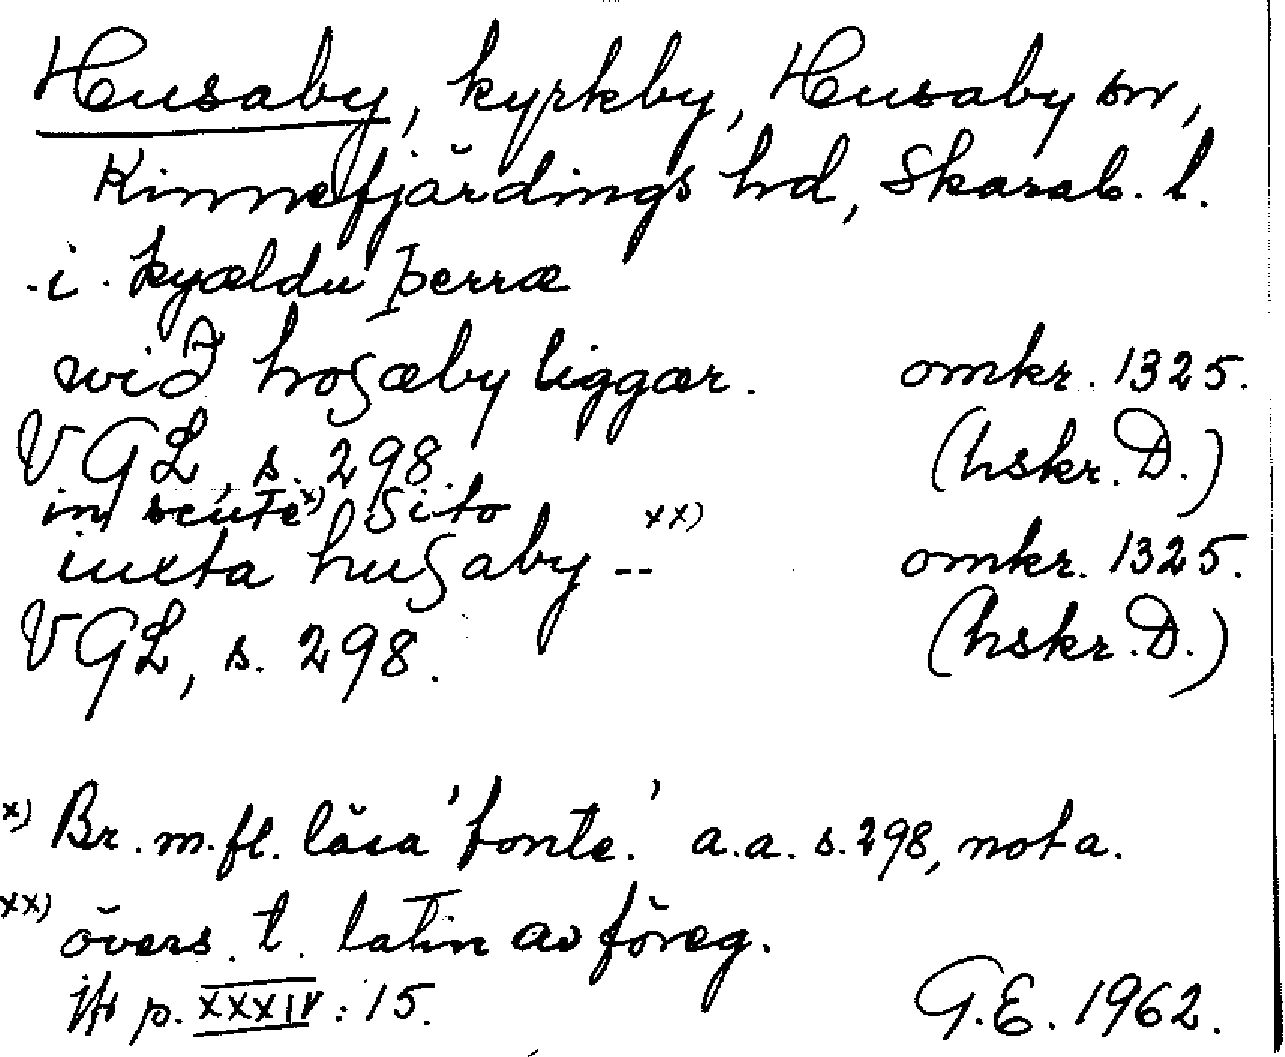 Husaby, kyrkby, Husaby sn,
Kinnefjärdings hd, Skarab. l.
i kyældu þerræ
wið hosæby liggær. omkr. 1325.
VGL, s. 298 (hskr. D.)
in scute x) sito
iuxta husaby -- xx) omkr. 1325.
VGL, s. 298. (hskr. D.)
x) Br. m.fl. läsa 'fonte.' a.a. s. 298, nota.
xx) övers. t. latin av föreg.
jfr p. XXXIV : 15.
G.E. 1962.